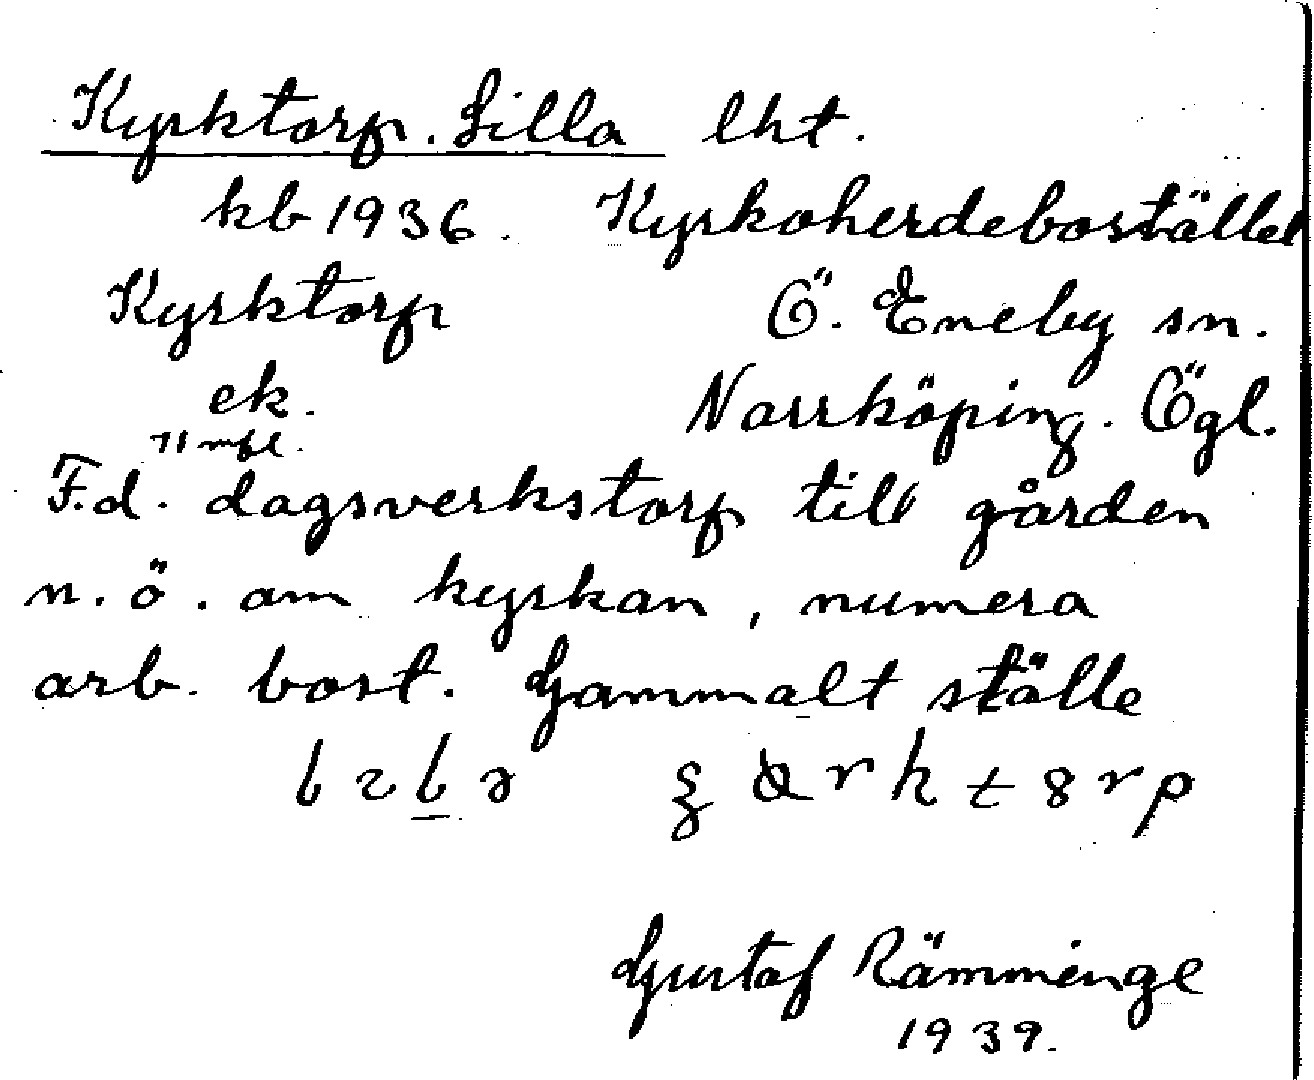 Kyrktorp. Lilla lht.
kb 1936. Kyrkoherdebostället
Kyrktorp Ö. Eneby sn.
ek. Norrköping. Ögl.
F.d. dagsverkstorp till gården
n.ö. om kyrkan, numera
arb. bost. Gammalt ställe
Gustaf Rämminge
1939.